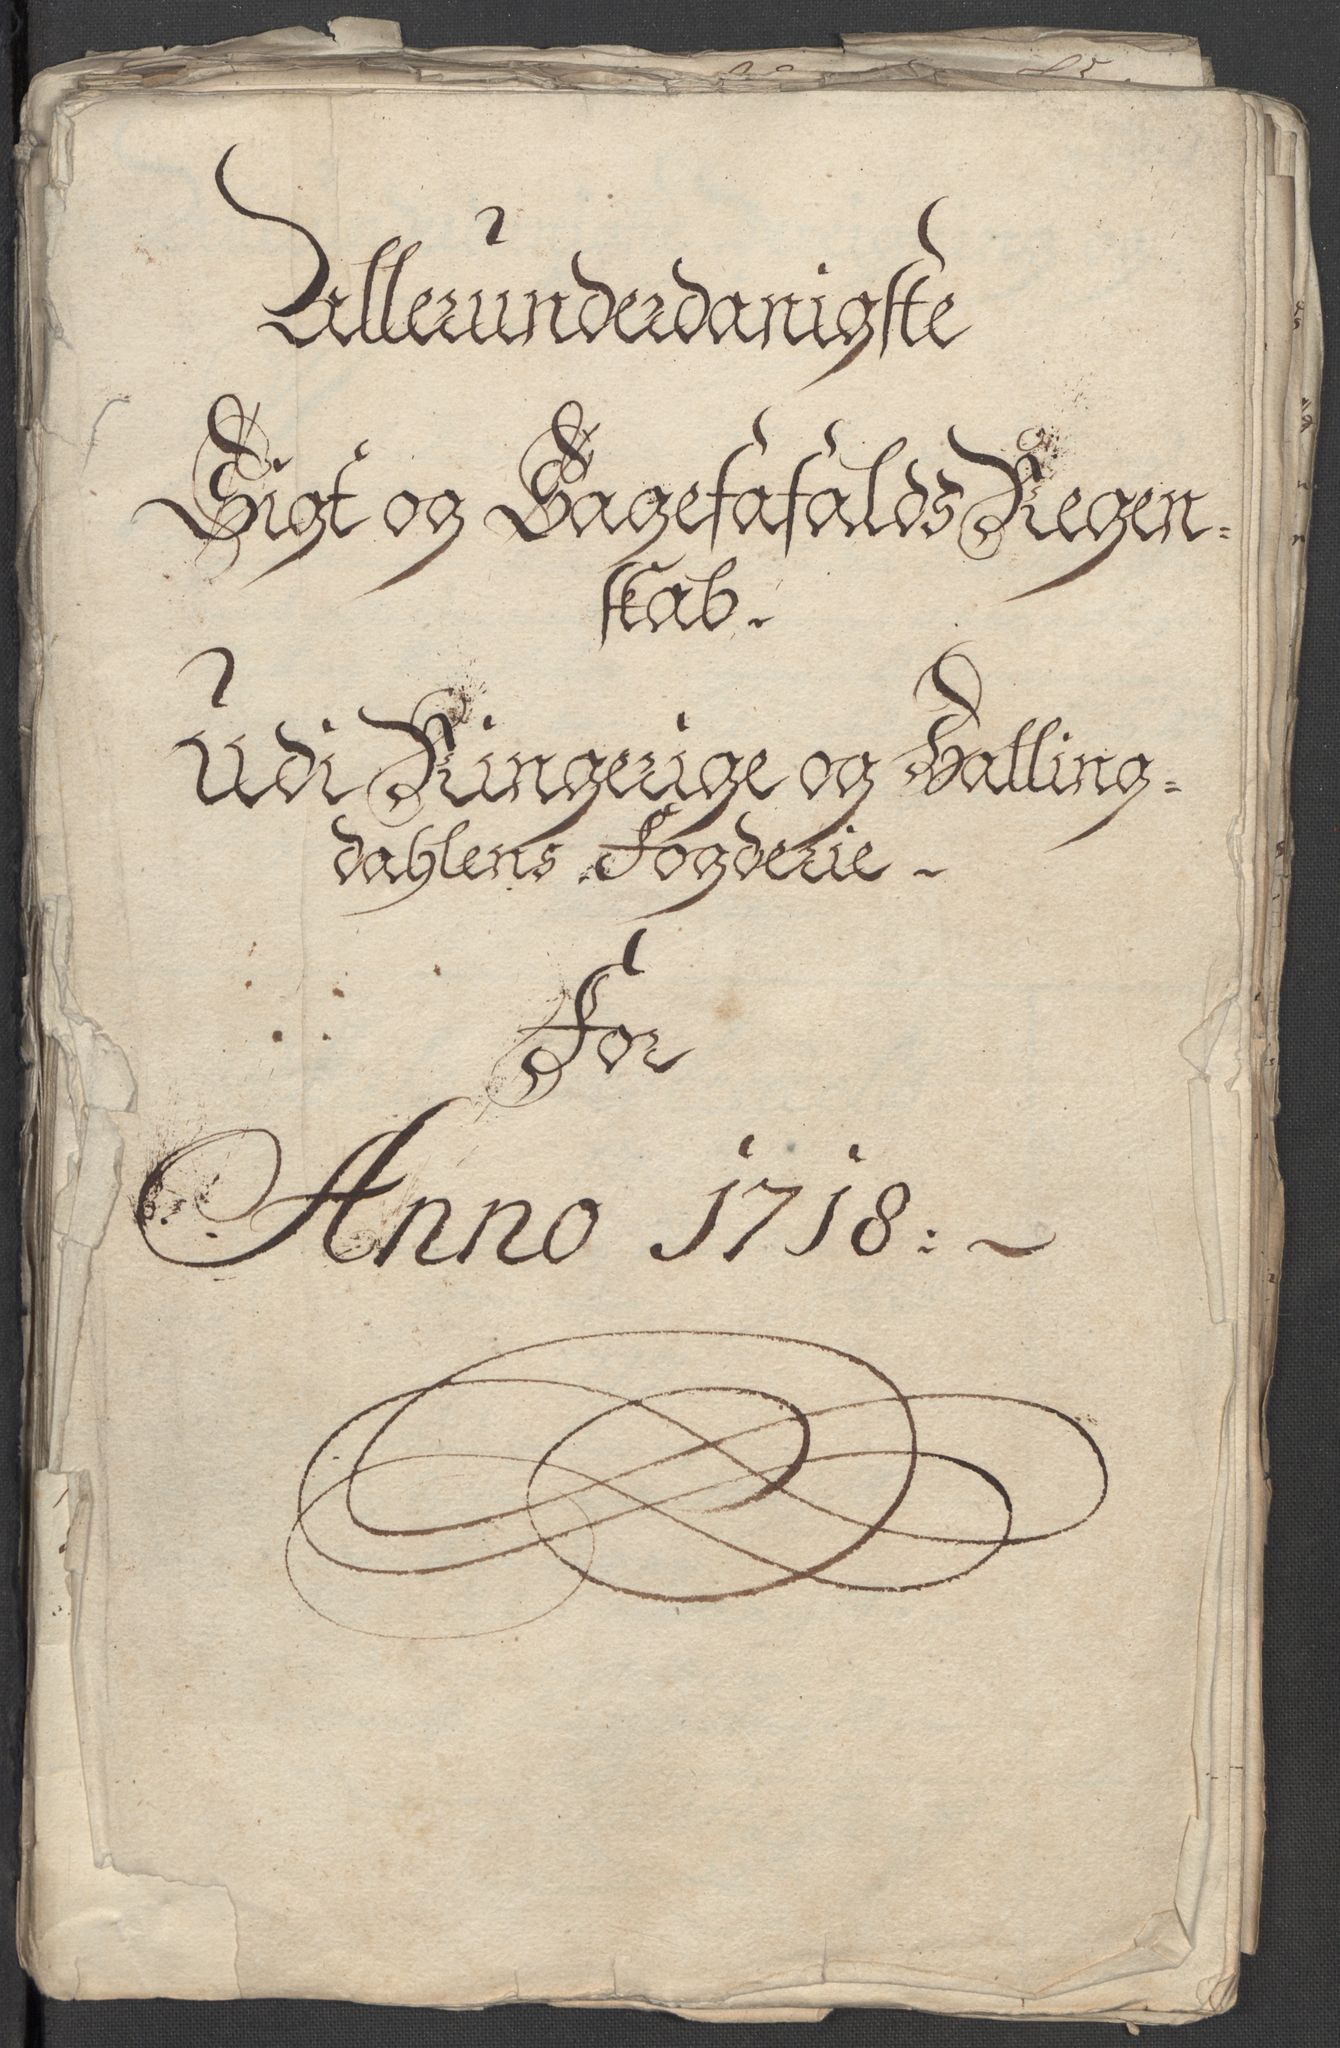 Allerunderdanigste
Sigt og Sagefafalds Regen=
skab.
Udi Ringerige og Halling=
dahlens Fogderie ~
For
Anno 1718: ~